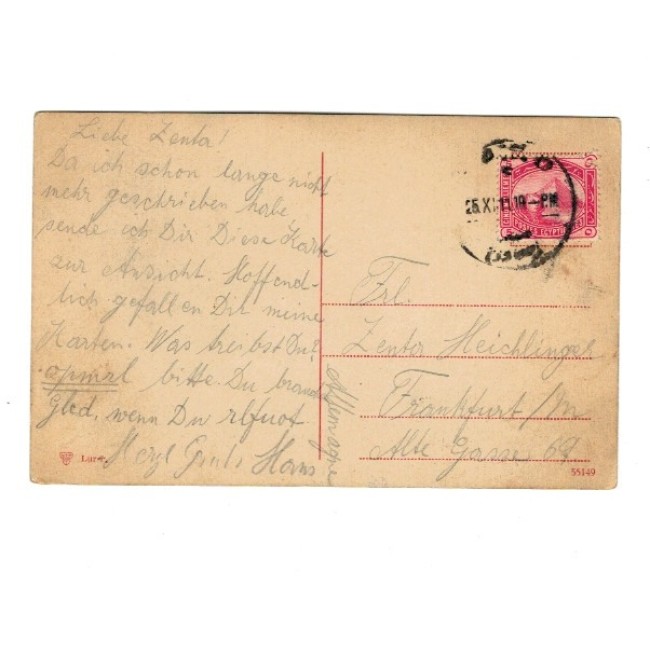 Liebe Zenta!
Da ich schon lange nicht
mehr geschrieben habe
sende ich Dir Diese Karte
zur Ansicht. Hoffend-
lich gefallen Dir meine
Karten. Was treibst Du?
bitte. Du
wenn Du
Hans
Allemagne
25.XI.11.19-PM
POSTES EGYPT
Frl.
Zenta Heichlinger
Frankfurt/M
Alte Gasse 69
55149